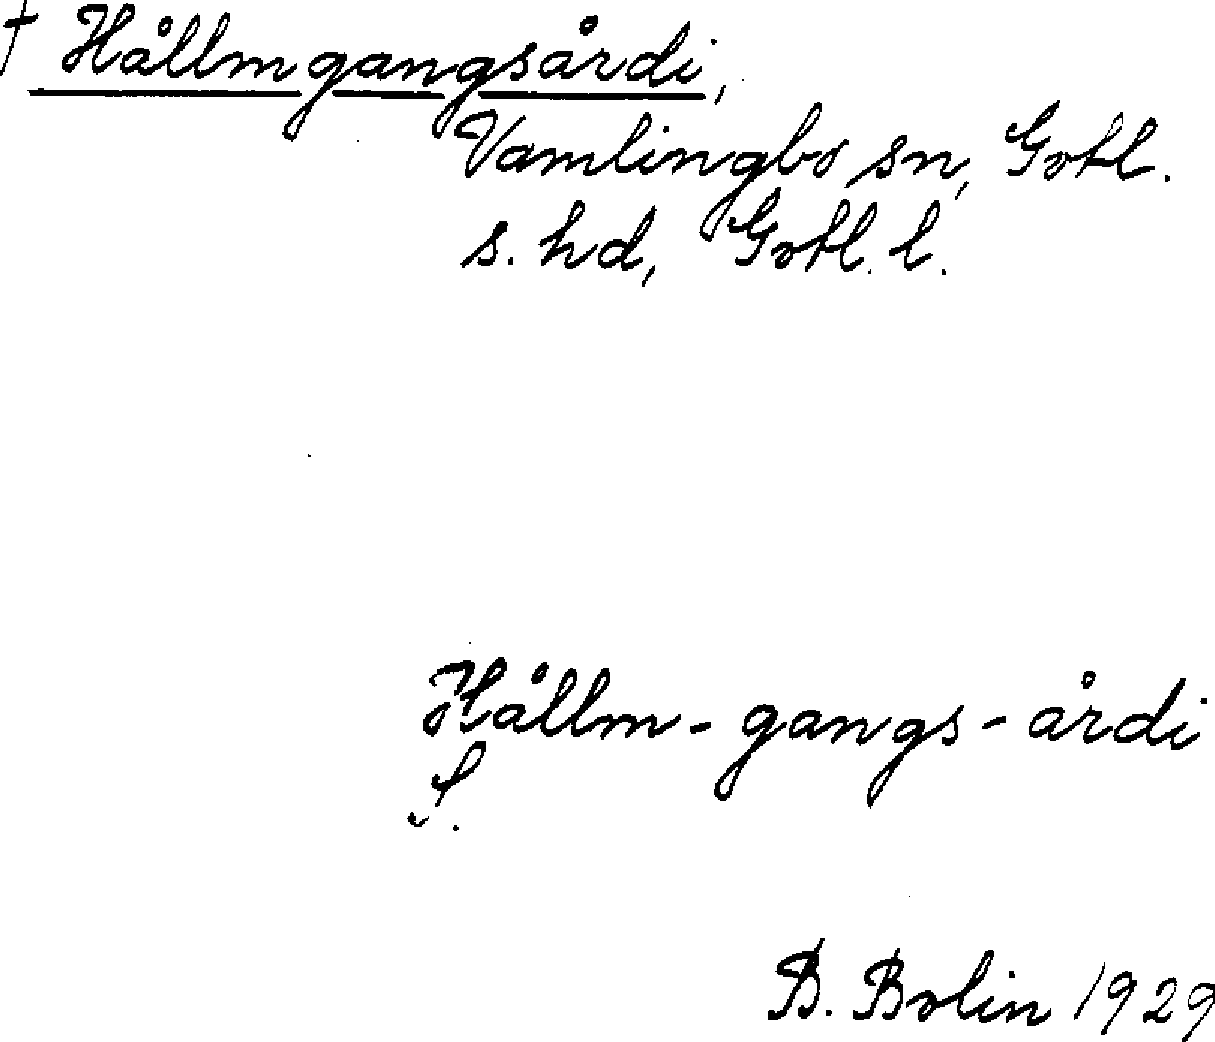 † Hållmgangsårdi,
Vamlingbo sn, Gotl.
s. hd, Gotl. l.
Hållm-gangs-årdi
f.
B. Bolin 1929